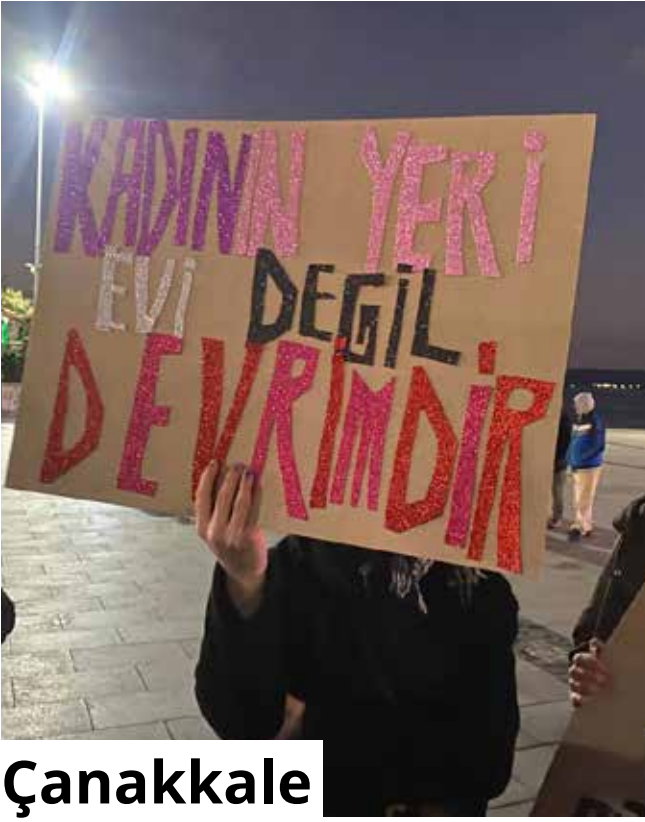 KADININ YERİ
EVİ DEGİL
DEVRİMDİR
Çanakkale